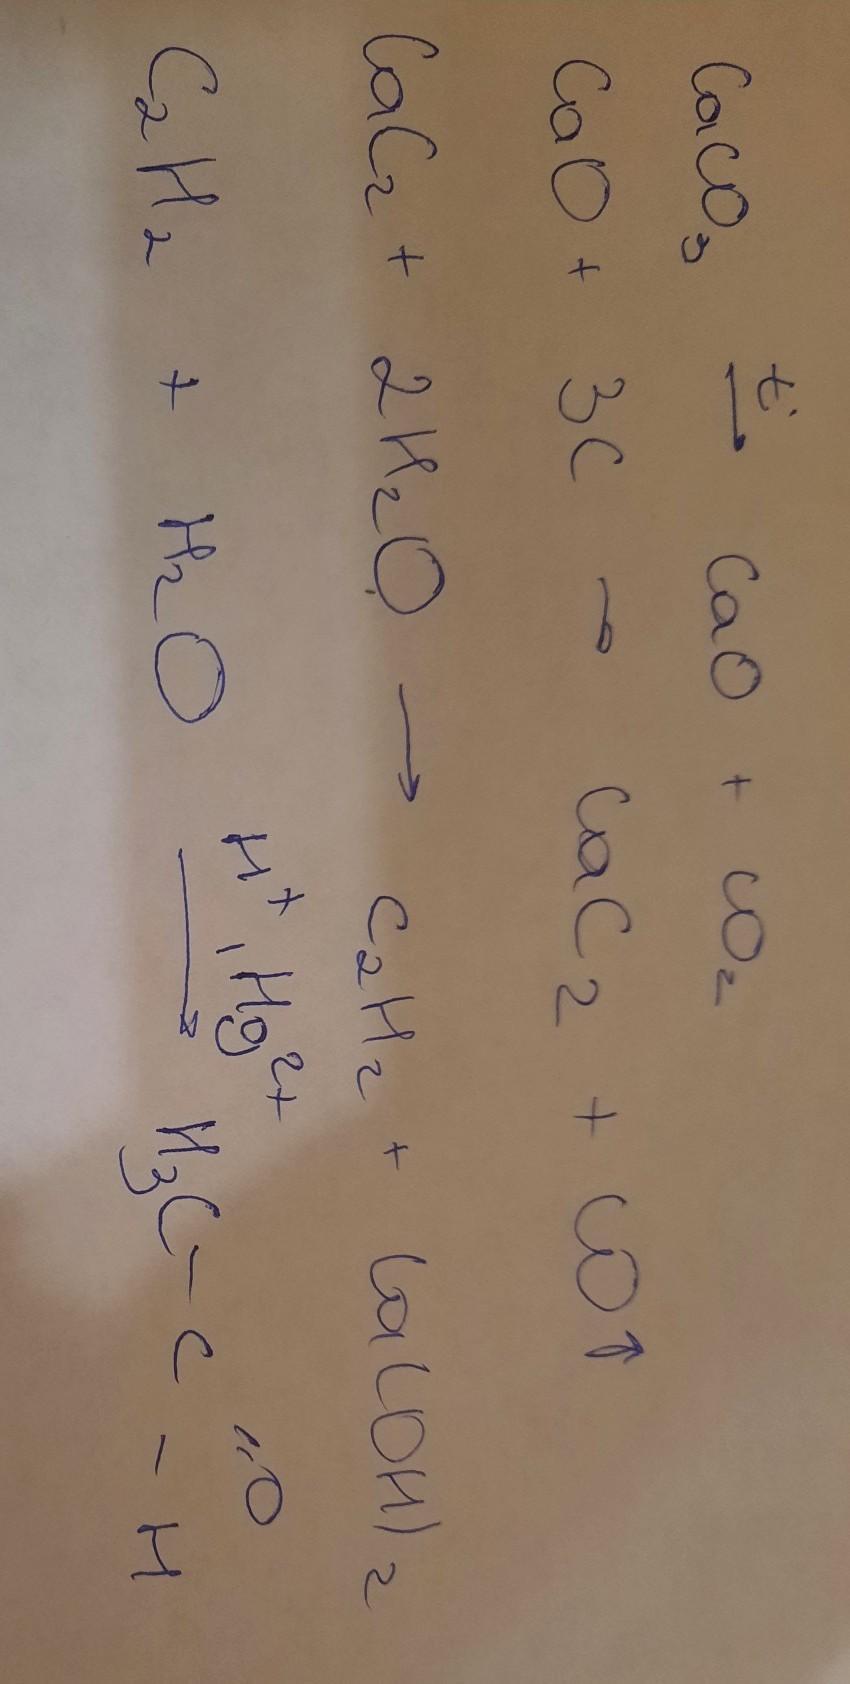 CaCO₃ t° → CaO + CO₂
CaO + 3C → CaC₂ + CO↑
CaC₂ + 2H₂O → C₂H₂ + Ca(OH)₂
C₂H₂ + H₂O H⁺, Hg²⁺ → H₃C – C =O – H